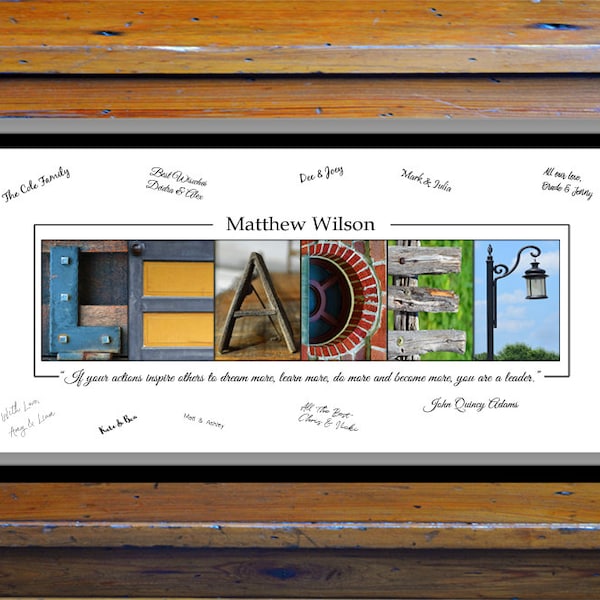 The Cole Family
Best Wisches
Deidra & Alex
Dee & Joey
Mark & Julia
All our love,
Brade & Jenny
Matthew Wilson
LEADER
"If your actions inspire others to dream more, learn more, do more and become more, you are a leader."
John Quincy Adams
With Love,
Amy & Liam
Kara & Ben
Matt & Ashley
All The Best-
Chris & Nicki